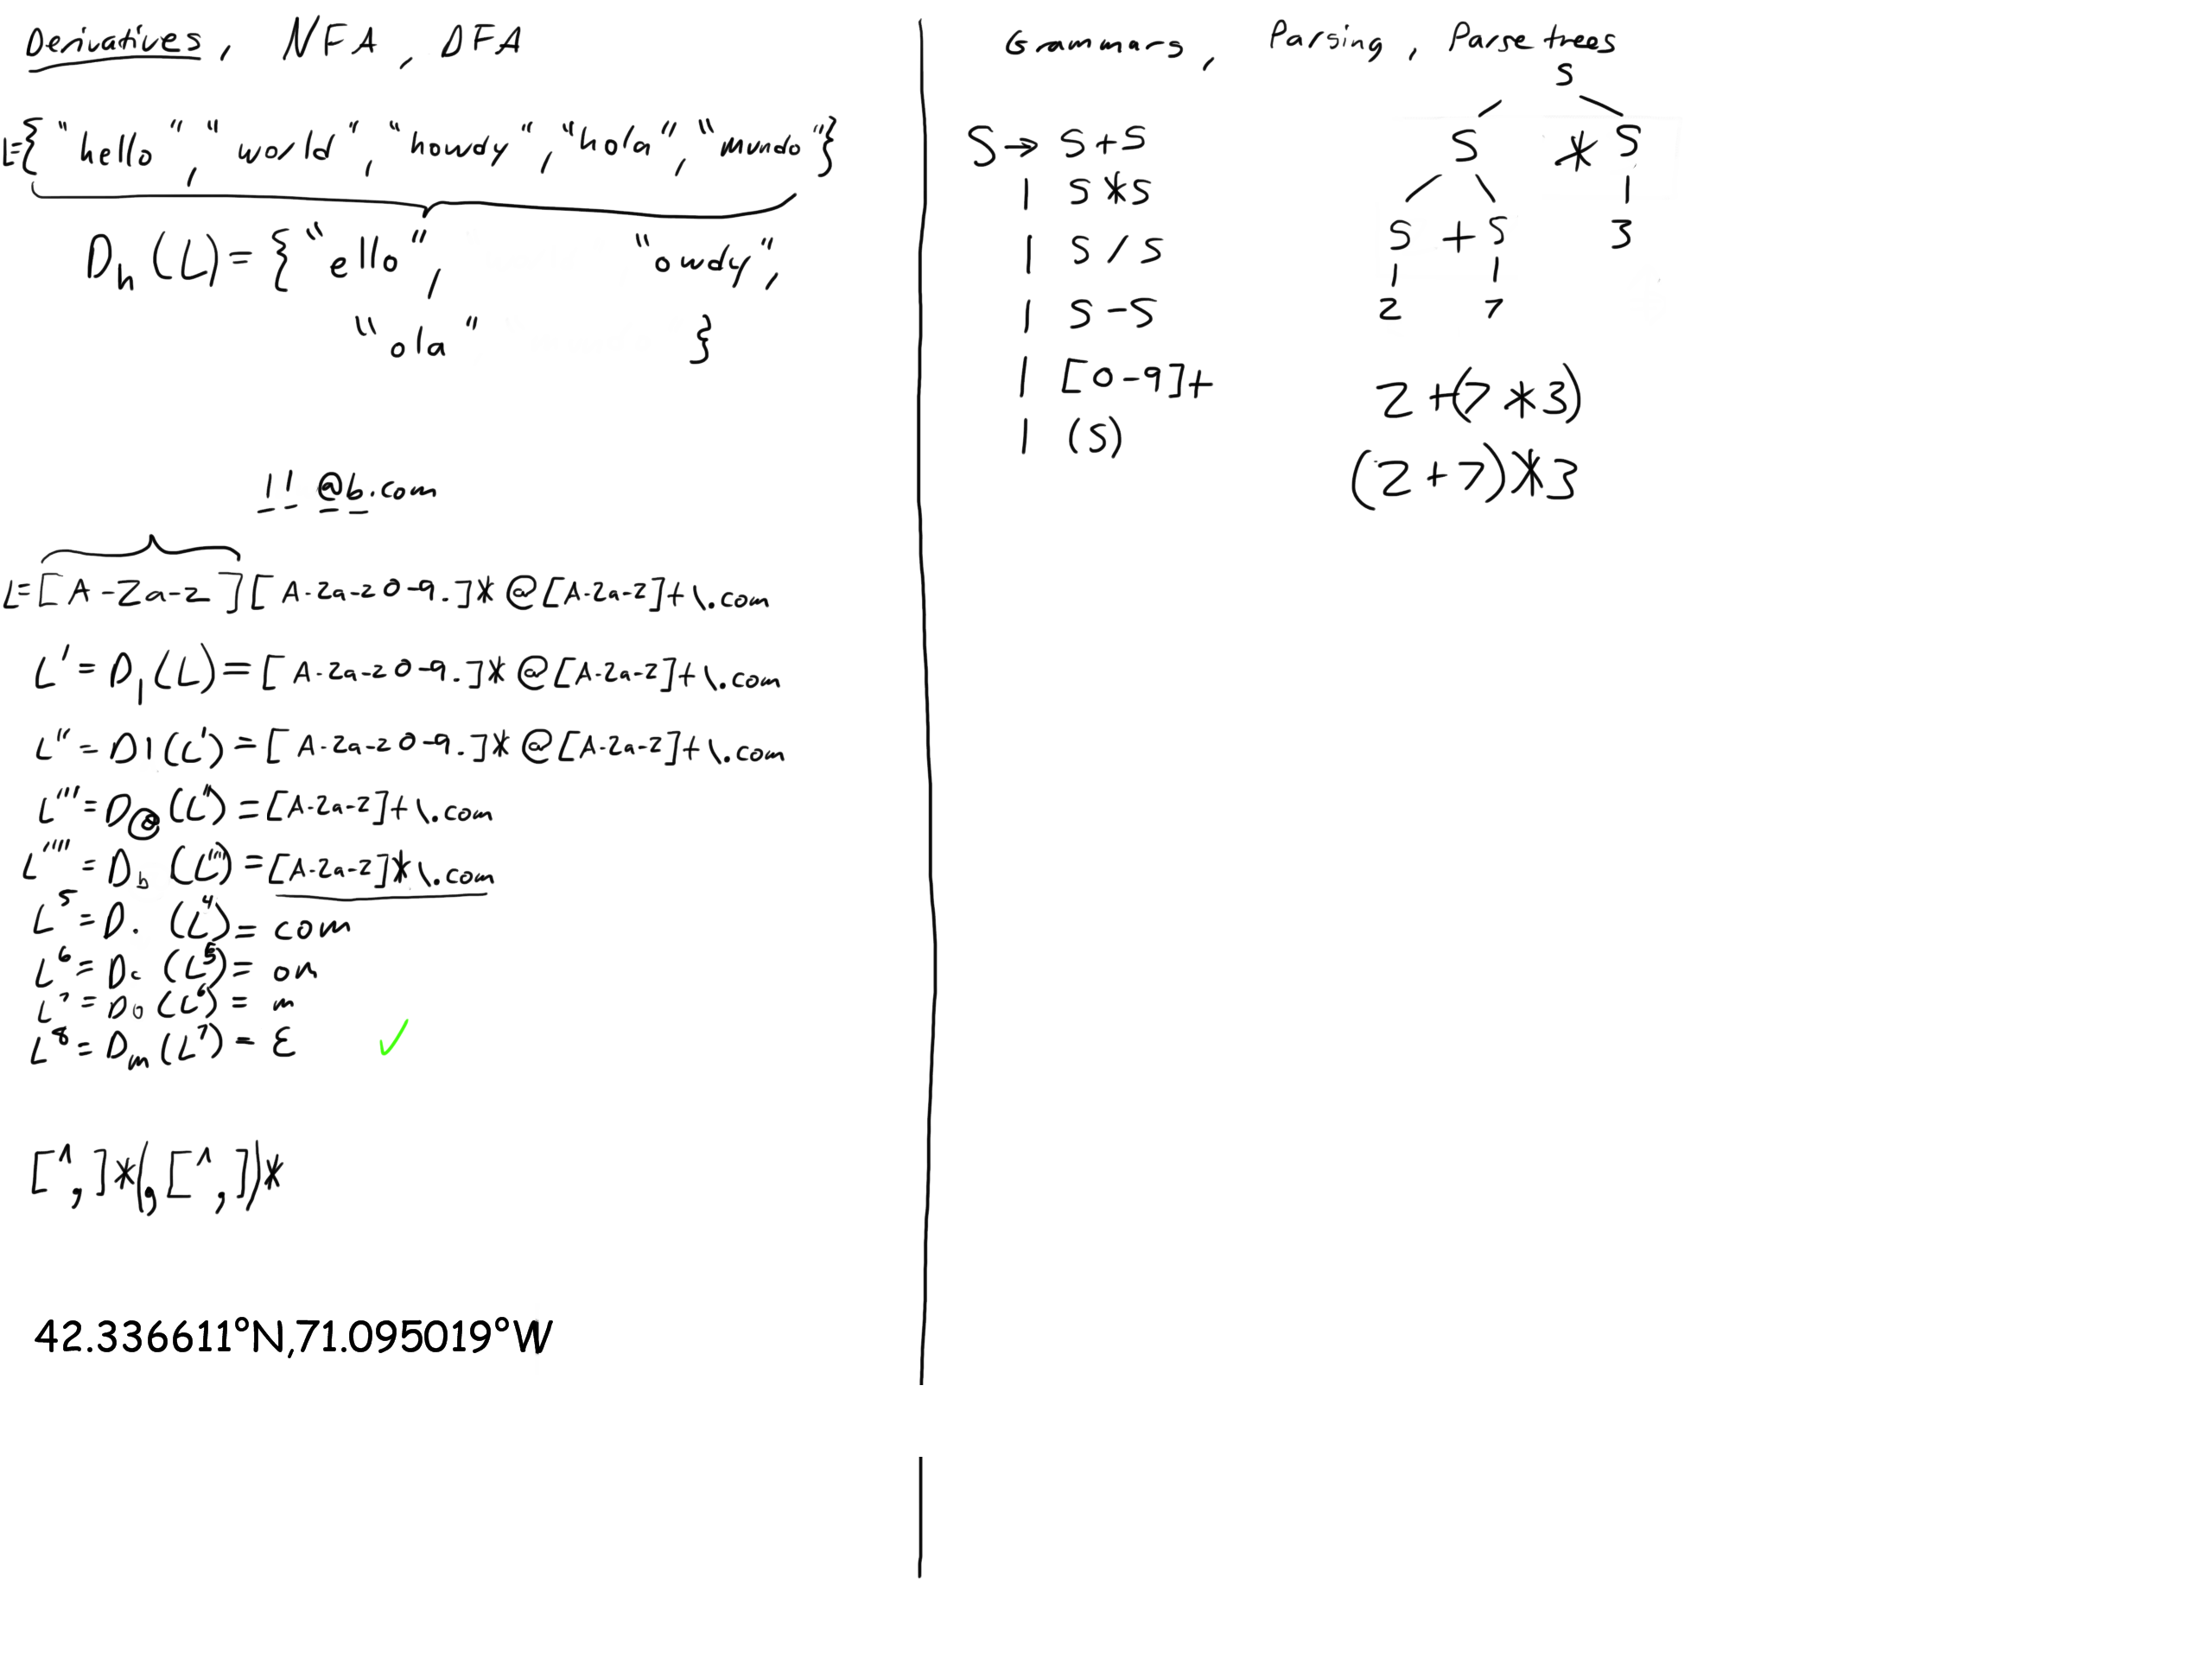 Derivatives, NFA, DFA
L={"hello", "world", "howdy", "hola", "mundo"}
Dh(L)={"ello", "owdy",
"ola" }
11@b.com
L=[A-Za-z][A-Za-z0-9.]*@[A-Za-z]+\.com
L'=D1(L)=[A-Za-z0-9.]*@[A-Za-z]+\.com
L''=D1(L')=[A-Za-z0-9.]*@[A-Za-z]+\.com
L'''=D@(L'')=[A-Za-z]+\.com
L''''=Db(L''')=[A-Za-z]*\.com
L5=D.(L4)=com
L6=Dc(L5)=om
L7=Do(L6)=m
L8=Dm(L7)=ε ✓
[^,]*(,[^,])*
42.336611°N,71.095019°W
Grammars, Parsing, Parse trees
S→ S+S
| S*S
| S/S
| S-S
| [0-9]+
| (S)
S
S * S
S + S 3
2 7
2+(7*3)
(2+7)*3